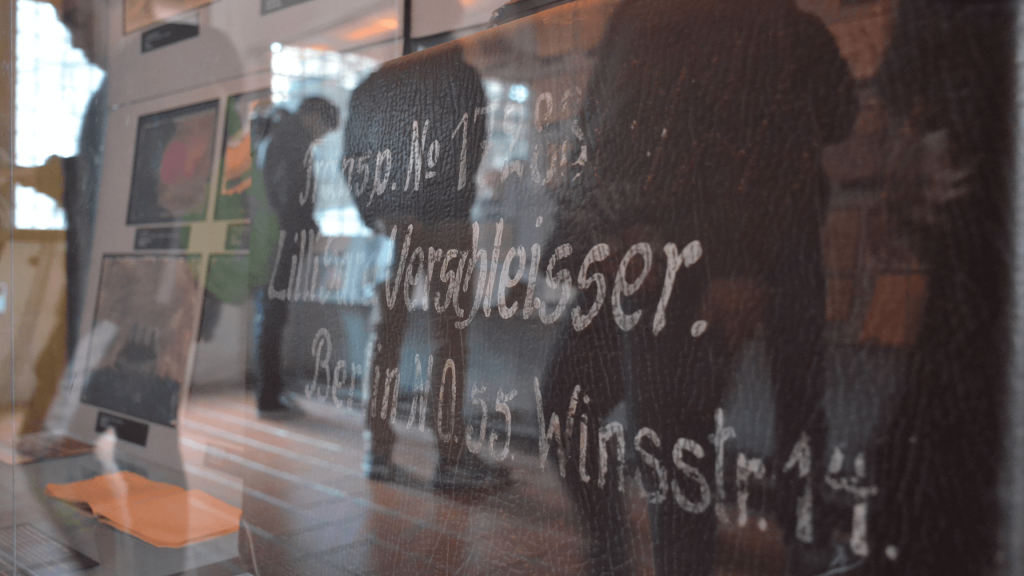 Transp. № 17
Lillian Vorschleisser.
Berlin N.O. 55. Winsstr. 14.